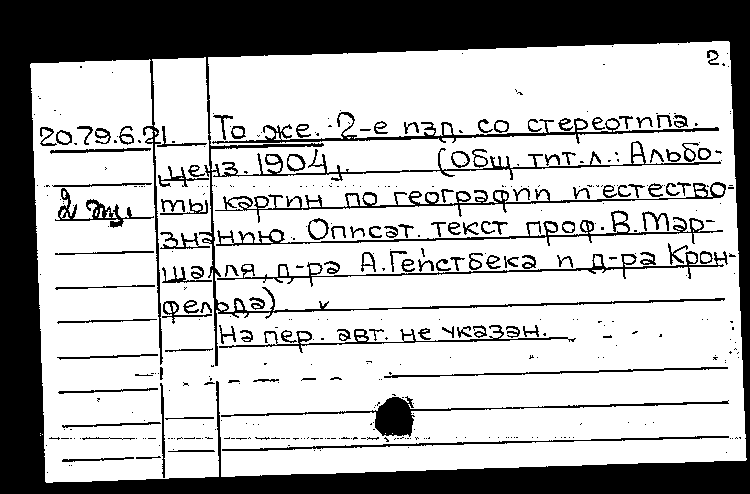 2.
20.79.6.21. То же. 2-е изд. со стереотипа.
ценз. 1904]. (Общ. тит. л.: Альбо-
2 экз. ты картин по географии и естество-
знанию. Описат. текст проф. В. Мар-
шалля, д-ра А. Гейстбека и д-ра Крон-
фельда)
На пер. авт. не указан.